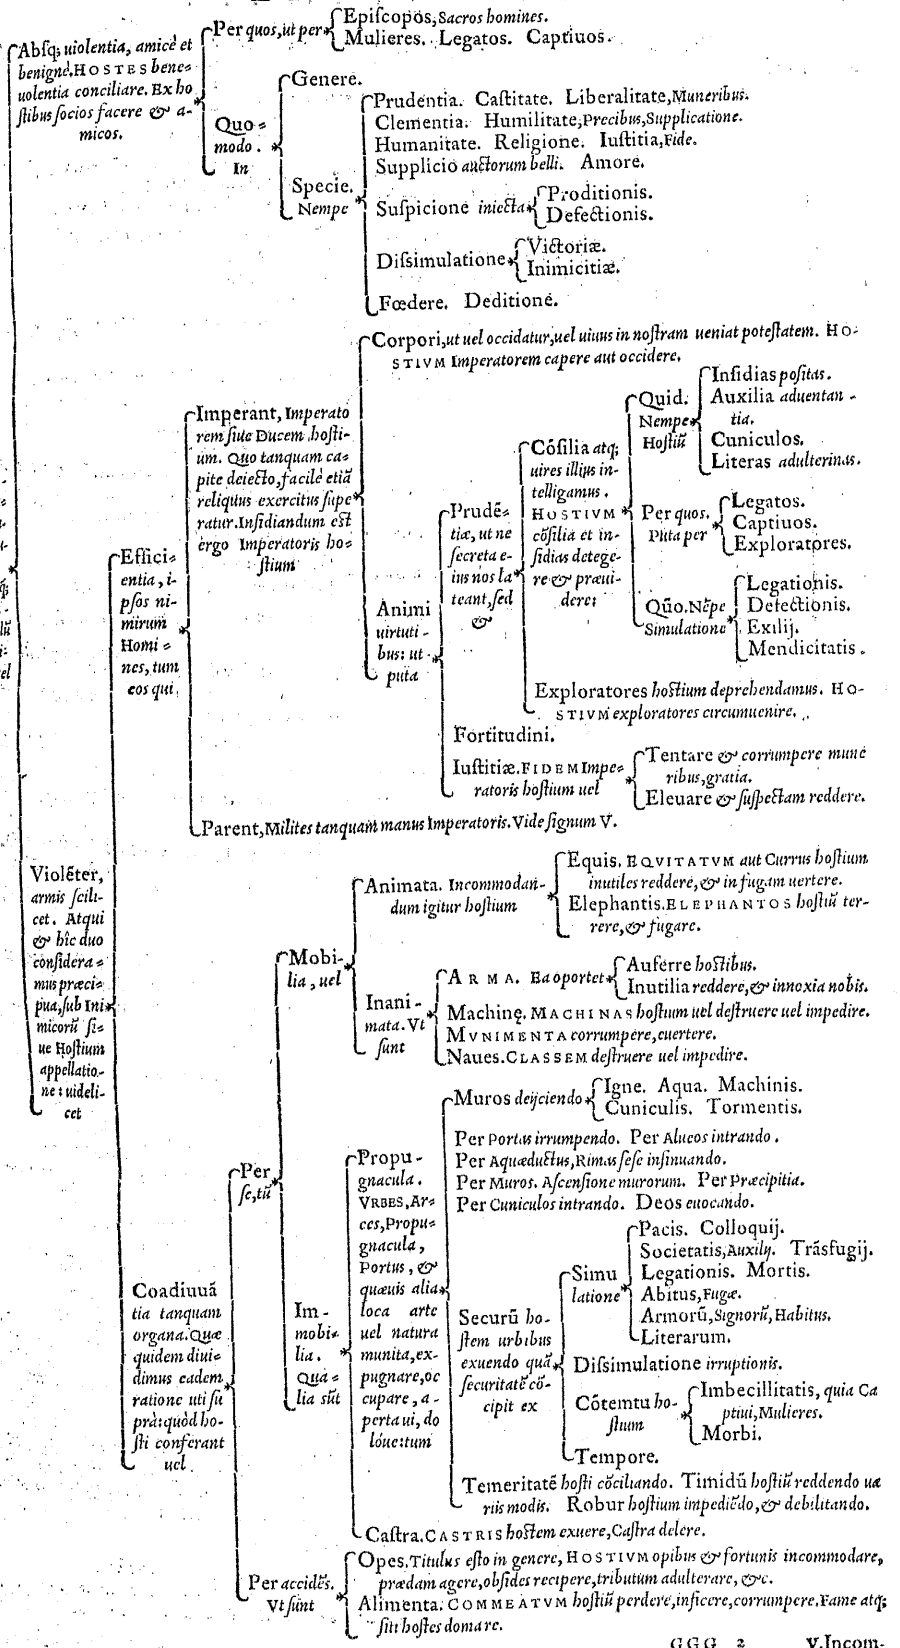 Per quos, ut per
Epiſcopos, Sacros homines.
Mulieres. Legatos. Captiuos.
Abſq; uiolentia, amicè et
benignè. HOSTES bene-
uolentia conciliare. Ex ho
ſtibus ſocios facere & a-
micos.
Quo-
modo.
In
Genere.
Specie.
Nempe
Prudentia. Caſtitate. Liberalitate, Muneribus.
Clementia. Humilitate, Precibus, Supplicatione.
Humanitate. Religione. Iuſtitia, Fide.
Supplicio auctorum belli. Amore.
Suſpicione iniecta
Proditionis.
Defectionis.
Diſsimulatione
Victoriæ.
Inimicitiæ.
Fœdere. Deditione.
Violẽter,
armis ſcili-
cet. Atqui
& hîc duo
conſidera-
mus præci-
pua, ſub Ini
micorũ ſi-
ue Hoſtium
appellatio-
ne: uideli-
cet
Effici-
entia, i-
pſos ni-
mirum
Homi-
nes, tum
eos qui
Imperant, Imperato
rem ſiue Ducem hoſti-
um. Quo tanquam ca-
pite deiecto, facile etiã
reliquus exercitus ſupe
ratur. Inſidiandum eſt
ergo Imperatoris ho-
ſtium
Corpori, ut uel occidatur, uel uiuus in noſtram ueniat poteſtatem. HO-
STIVM Imperatorem capere aut occidere.
Animi
uirtuti-
bus: ut
puta
Prudẽ-
tiæ, ut ne
ſecreta e-
ius nos la
teant, ſed
&
Cõſilia atq;
uires illius in-
telligamus.
HOSTIVM
cõſilia et in-
ſidias detege-
re & præui-
dere:
Quid.
Nempe
Hoſtiũ
Inſidias poſitas.
Auxilia aduentan-
tia.
Cuniculos.
Literas adulterinas.
Per quos.
Puta per
Legatos.
Captiuos.
Exploratores.
Quõ. Nẽpe
Simulatione
Legationis.
Defectionis.
Exilij.
Mendicitatis.
Exploratores hoſtium deprehendamus. HO-
STIVM exploratores circumuenire.
Fortitudini.
Iuſtitiæ. FIDEM Impe-
ratoris hoſtium uel
Tentare & corrumpere mune
ribus, gratia.
Eleuare & ſuſpectam reddere.
Parent, Milites tanquam manus Imperatoris. Vide ſignum V.
Coadiuuã
tia tanquam
organa. Quæ
quidem diui-
dimus eadem
ratione uti ſu
prà: quòd ho-
ſti conferant
uel
Per
ſe, tũ
Mobi-
lia, uel
Animata. Incommodan-
dum igitur hoſtium
Equis. EQVITATVM aut Currus hoſtium
inutiles reddere, & in fugam uertere.
Elephantis. ELEPHANTOS hoſtiũ ter-
rere, & fugare.
Inani-
mata. Vt
ſunt
ARMA. Ea oportet
Auferre hoſtibus.
Inutilia reddere, & innoxia nobis.
Machinę. MACHINAS hoſtium uel deſtruere uel impedire.
MVNIMENTA corrumpere, euertere.
Naues. CLASSEM deſtruere uel impedire.
Im-
mobi-
lia.
Qua-
lia sũt
Propu-
gnacula.
VRBES, Ar-
ces, Propu-
gnacula,
Portus, &
quæuis alia
loca arte
uel natura
munita, ex-
pugnare, oc
cupare, a-
perta ui, do
lóue: tum
Muros deijciendo
Igne. Aqua. Machinis.
Cuniculis. Tormentis.
Per Portas irrumpendo. Per Alueos intrando.
Per Aquæductus, Rimas ſeſe inſinuando.
Per Muros. Aſcenſione murorum. Per Præcipitia.
Per Cuniculos intrando. Deos euocando.
Securũ ho-
ſtem urbibus
exuendo quã
ſecuritatẽ cõ-
cipit ex
Simu
latione
Pacis. Colloquij.
Societatis, Auxilij. Trãsfugij.
Legationis. Mortis.
Abitus, Fugæ.
Armorũ, Signorũ, Habitus.
Literarum.
Diſsimulatione irruptionis.
Cõtemtu ho-
ſtium
Imbecillitatis, quia Ca
ptiui, Mulieres.
Morbi.
Tempore.
Temeritatẽ hoſti cõciliando. Timidũ hoſtiũ reddendo ua
riis modis. Robur hoſtium impediẽdo, & debilitando.
Caſtra. CASTRIS hoſtem exuere, Caſtra delere.
Per accidẽs.
Vt ſunt
Opes. Titulus eſto in genere, HOSTIVM opibus & fortunis incommodare,
prædam agere, obſides recipere, tributum adulterare, &c.
Alimenta. COMMEATVM hoſtiũ perdere, inficere, corrumpere. Fame atq;
ſiti hoſtes domare.
GGG 2 V. Incom-